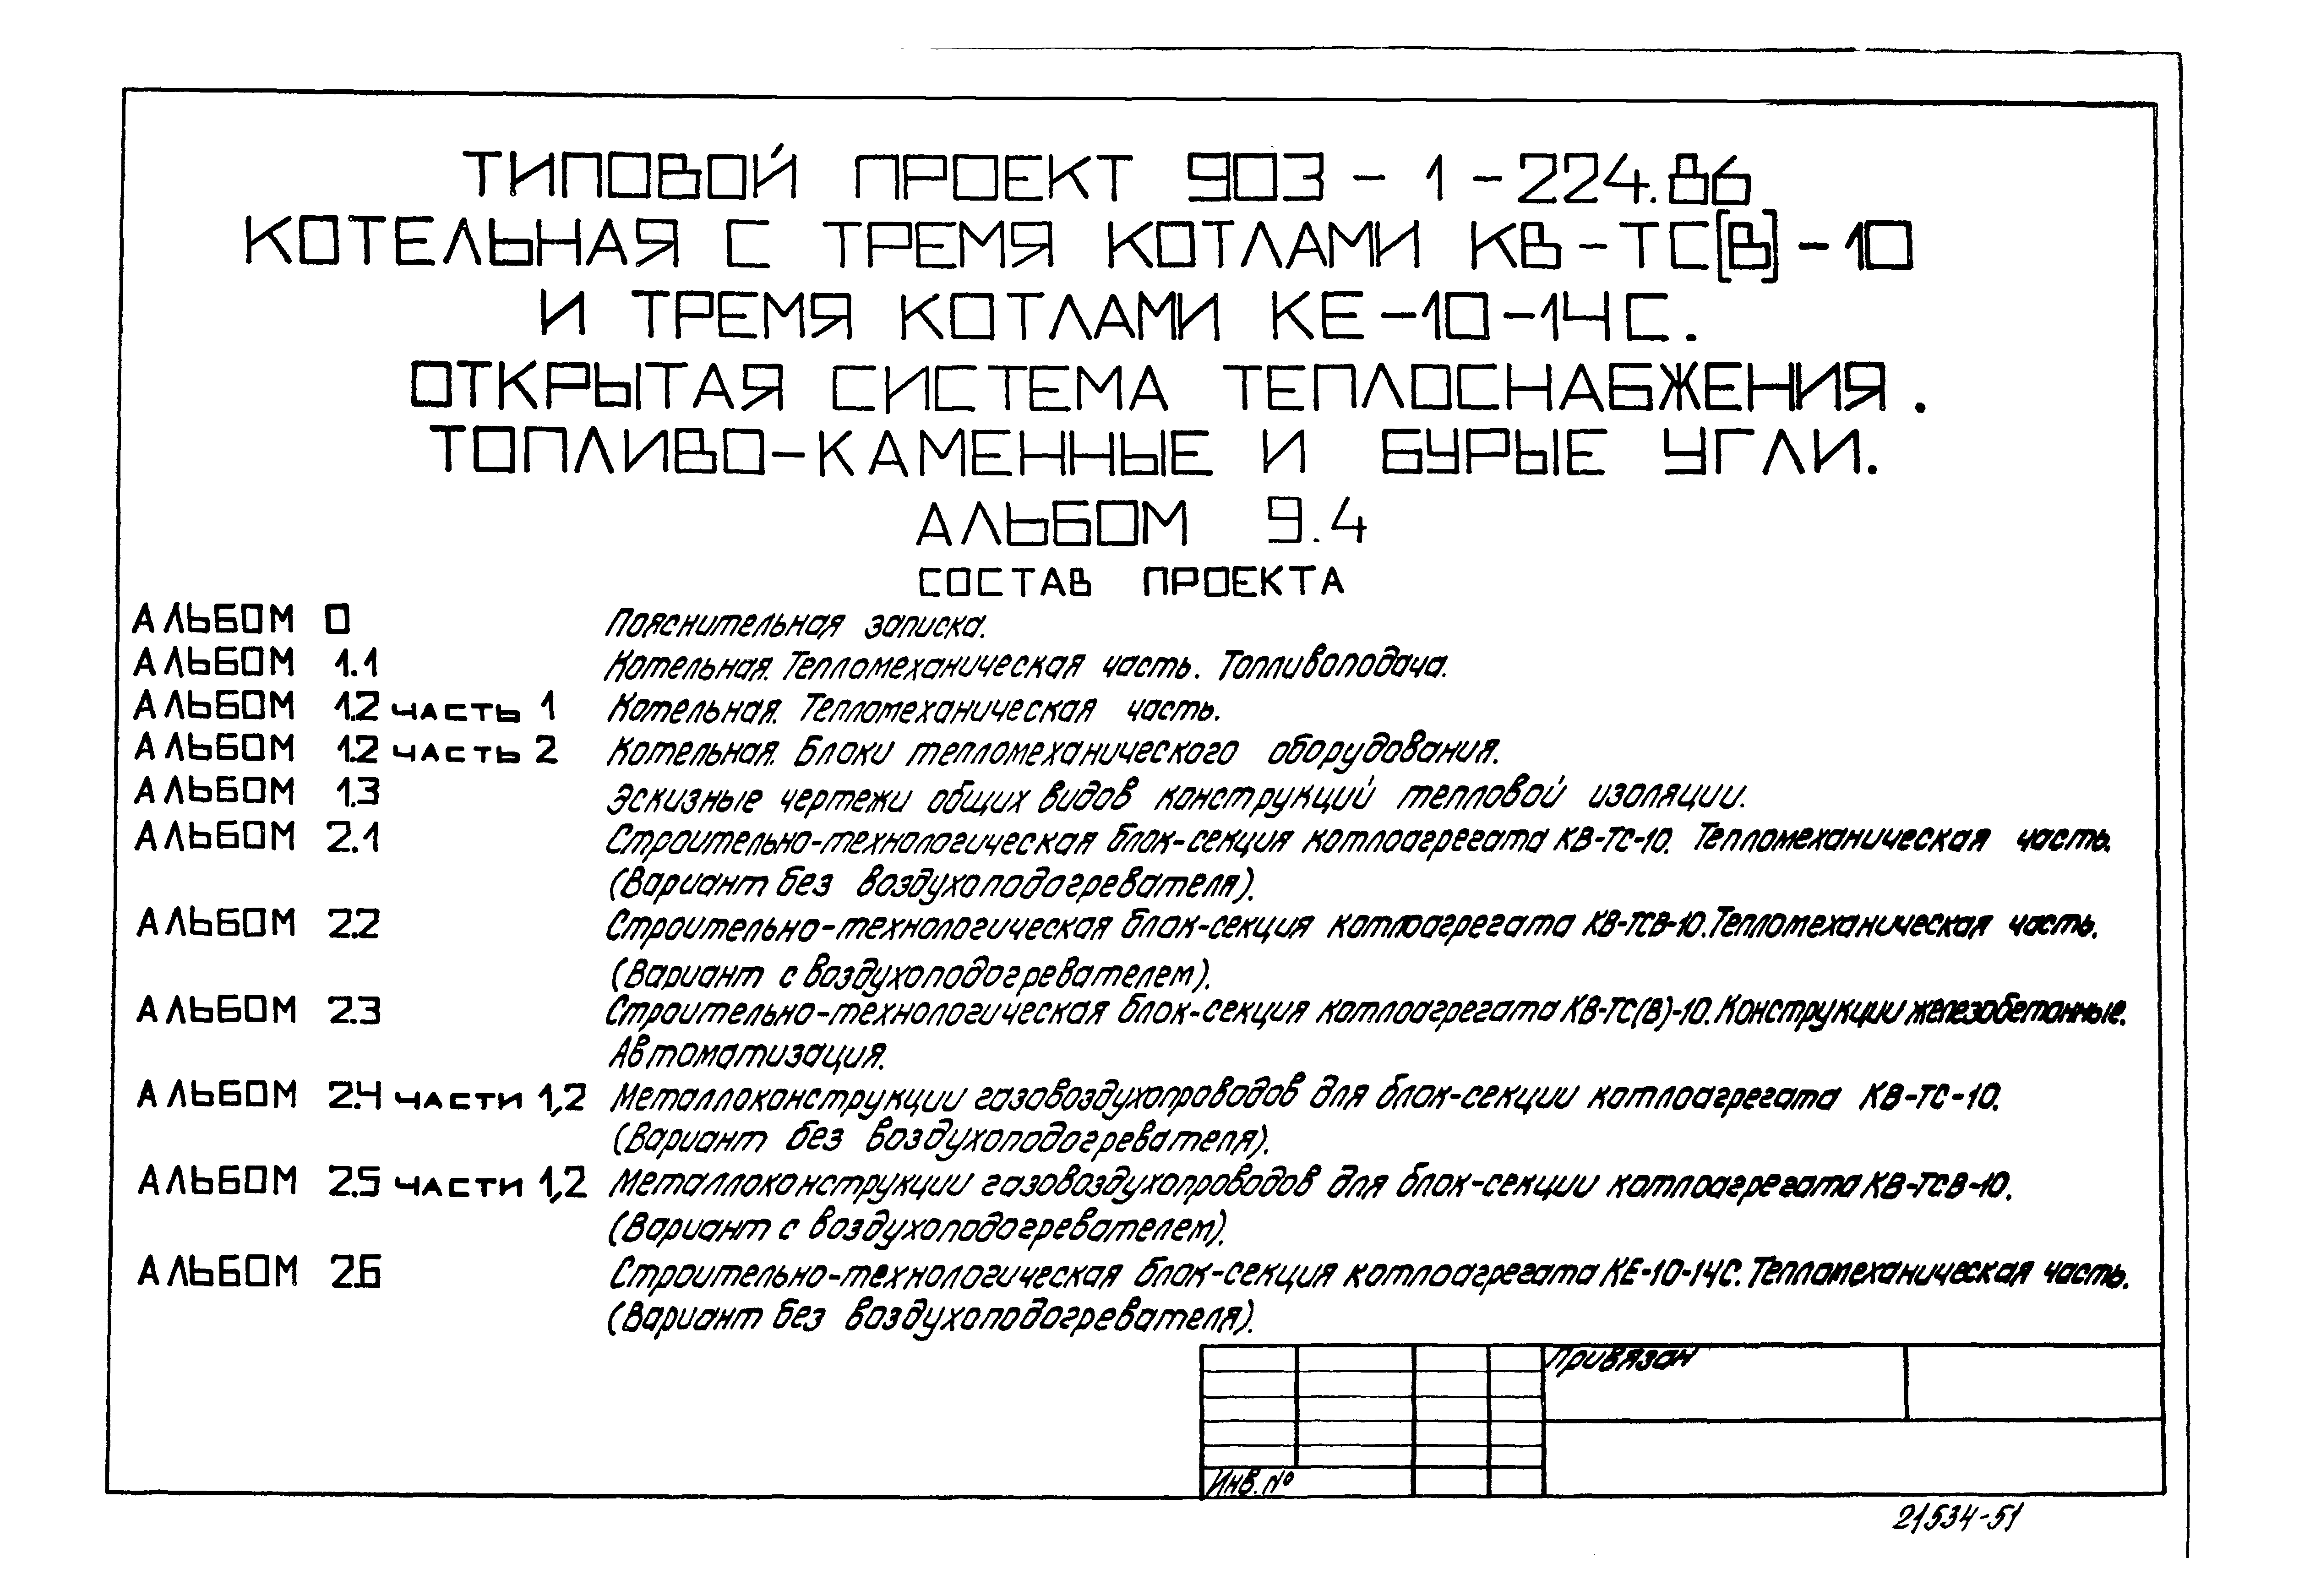 ТИПОВОЙ ПРОЕКТ 903-1-224.86
КОТЕЛЬНАЯ С ТРЕМЯ КОТЛАМИ КВ-ТС[В]-10
И ТРЕМЯ КОТЛАМИ КЕ-10-14С.
ОТКРЫТАЯ СИСТЕМА ТЕПЛОСНАБЖЕНИЯ.
ТОПЛИВО-КАМЕННЫЕ И БУРЫЕ УГЛИ.
АЛЬБОМ 9.4
СОСТАВ ПРОЕКТА
АЛЬБОМ 0 Пояснительная записка.
АЛЬБОМ 1.1 Котельная. Тепломеханическая часть. Топливоподача.
АЛЬБОМ 1.2 ЧАСТЬ 1 Котельная. Тепломеханическая часть.
АЛЬБОМ 1.2 ЧАСТЬ 2 Котельная. Блоки тепломеханического оборудования.
АЛЬБОМ 1.3 Эскизные чертежи общих видов конструкций тепловой изоляции.
АЛЬБОМ 2.1 Строительно-технологическая блок-секция котлоагрегата КВ-ТС-10. Тепломеханическая часть.
(Вариант без воздухоподогревателя).
АЛЬБОМ 2.2 Строительно-технологическая блок-секция котлоагрегата КВ-ТСВ-10. Тепломеханическая часть.
(Вариант с воздухоподогревателем).
АЛЬБОМ 2.3 Строительно-технологическая блок-секция котлоагрегата КВ-ТС(В)-10. Конструкции железобетонные.
Автоматизация.
АЛЬБОМ 2.4 ЧАСТИ 1,2 Металлоконструкции газовоздухопроводов для блок-секции котлоагрегата КВ-ТС-10.
(Вариант без воздухоподогревателя).
АЛЬБОМ 2.5 ЧАСТИ 1,2 Металлоконструкции газовоздухопроводов для блок-секции котлоагрегата КВ-ТСВ-10.
(Вариант с воздухоподогревателем).
АЛЬБОМ 2.6 Строительно-технологическая блок-секция котлоагрегата КЕ-10-14С. Тепломеханическая часть.
(Вариант без воздухоподогревателя).
Привязан
Инв. №
21534-51